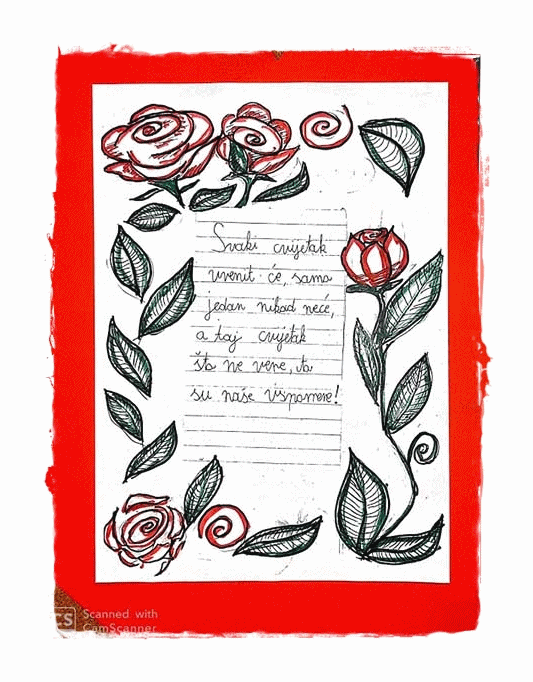 Svaki cvijetak
uvenit će, samo
jedan nikad neće,
a taj cvijetak
šta ne vene, to
su naše uspomene!
CS Scanned with
CamScanner